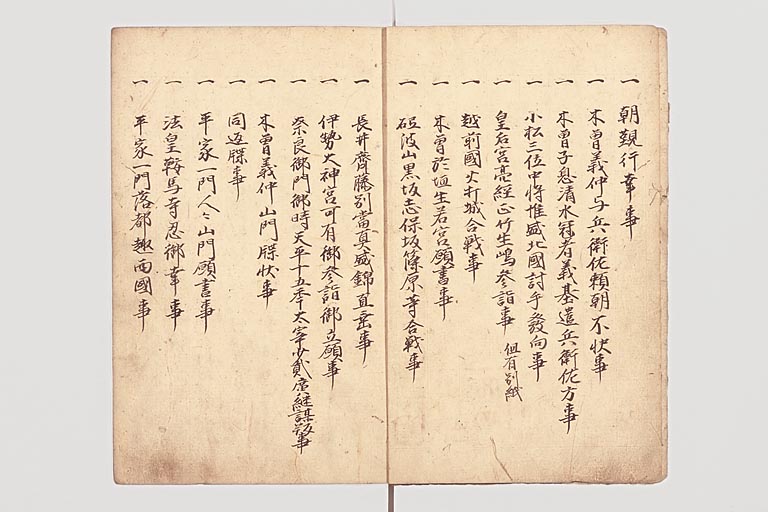 一 朝覲行幸事
一 木曽義仲与兵衛佐頼朝不快事
一 木曽子息清水冠者義基遣兵衛佐方事
一 小松三位中将惟盛北國討手發向事
一 皇后宮亮経正竹生嶋参詣事 但有別紙
一 越前國火打城合戦事
一 木曽於埴生若宮願書事
一 砥波山黒坂志保坂篠原等合戦事
一 長井齊藤別當真盛錦直垂事
一 伊勢大神宮可有御参詣御立願事
奈良御門御時天平十五年太宰少貳廣継謀叛事
一 木曽義仲山門牒状事
一 同返牒事
一 平家一門人々山門願書事
一 法皇鞍馬寺忍御幸事
一 平家一門落都趣西國事